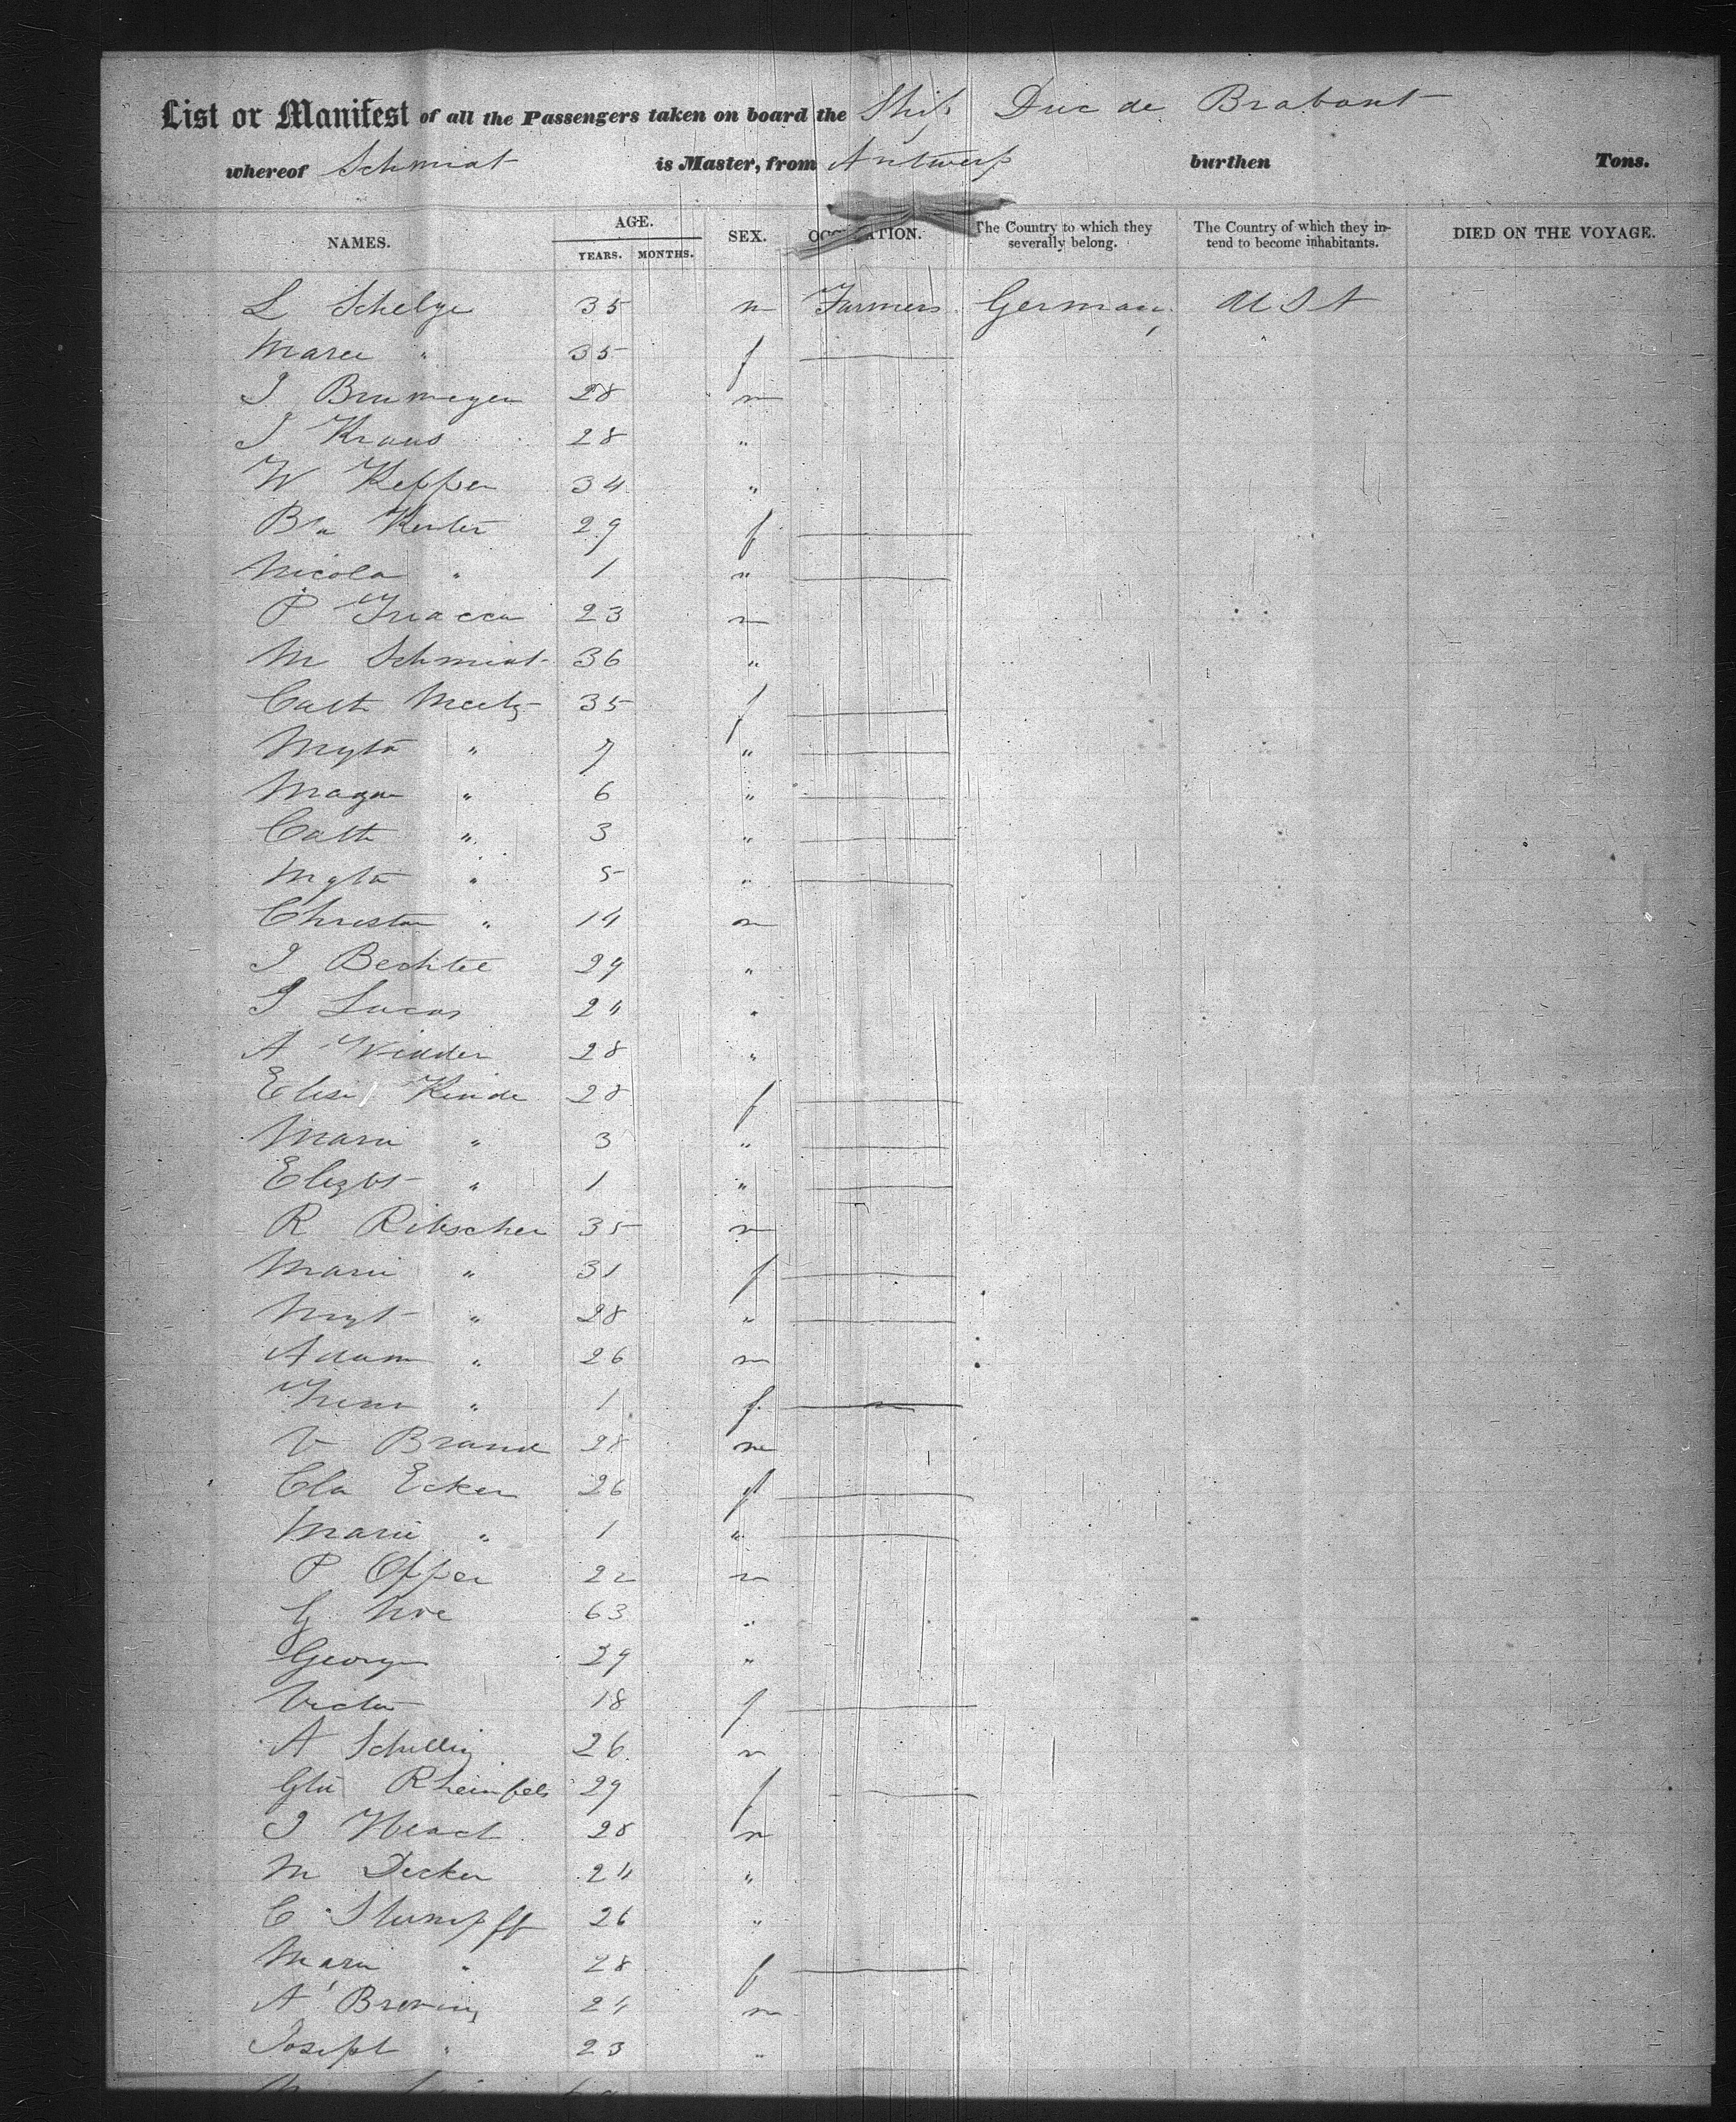 List or Manifest of all the Passengers taken on board the Ship Duc de Brabant
whereof Schmidt is Master, from Antwerp burthen Tons.
NAMES. AGE. YEARS. MONTHS. SEX. OCCUPATION. The Country to which they severally belong. The Country of which they intend to become inhabitants. DIED ON THE VOYAGE.
L Schelge 35 m Farmers Germany U S A
Marie " 35 f
J 28 m
J Kraus 28 "
W Kepper 34 "
29 f
Nicola " 1 m
P 23 m
M Schmidt 36 "
Cath 35 f
Mgta " 7 "
Magda " 6 "
Cath " 3 "
Mgta " 5 "
Christn " 14 m
J Bechtel 29 "
J Lucas 24 "
A Widder 28 "
Elise Kinde 28 f
Marie " 3 "
Elizbt " 1 "
R Ritscher 35 m
Marie " 31 f
Mgt " 28 "
Adam " 26 m
" 1 f
V Brand 28 m
Cla Ecker 26 f
Marie " 1 "
P Opper 22 m
G Noe 63 "
George 29 "
18 f
A Schilling 26 m
Rheinfels 29 f
J 28 m
M Decker 24 "
C Stumpff 26 "
Marie " 28 f
A Brening 24 m
Joseph " 23 "